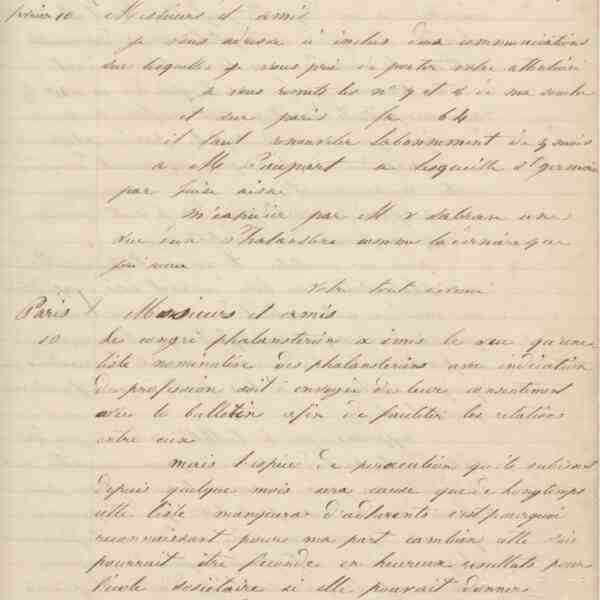 février 10 Messieurs et amis
je vous adresse ci inclus deux communications
sur lesquelles je vous prie de porter votre attention
à vous remets les n° 7 et 8 de ma
et sur paris fr 64
il faut renouveler labonnement de 3 mois
a M Paupart a st germain
par
par M une
vue d'un Phalanstère comme la dernière que
j'ai
Votre tout dévoué
Paris X Messieurs et amis
10 Le congrè phalanstérien a émis le veu qu'une
liste nominative des phalanstériens avec indication
de profession soit envoyée de leur consentement
avec le bulletin afin de faciliter les relations
entre eux
mais l'espèce de persecution qu'ils subissent
depuis quelque mois sera cause que de longtemps
cette liste manquera d'adhérents c'est pourquoi
reconnaissant pour ma part combien elle
pourrait être féconde en heureux resultats pour
l'école sociétaire si elle pouvait donner